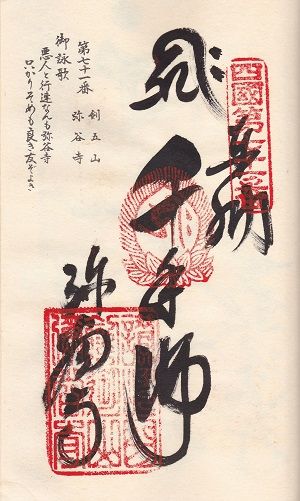 四國第七十一番
奉納
千手
弥谷寺
第七十一番 剣五山
弥谷寺
御詠歌
悪人と行連なんも弥谷寺
只かりそめも良き友ぞよき